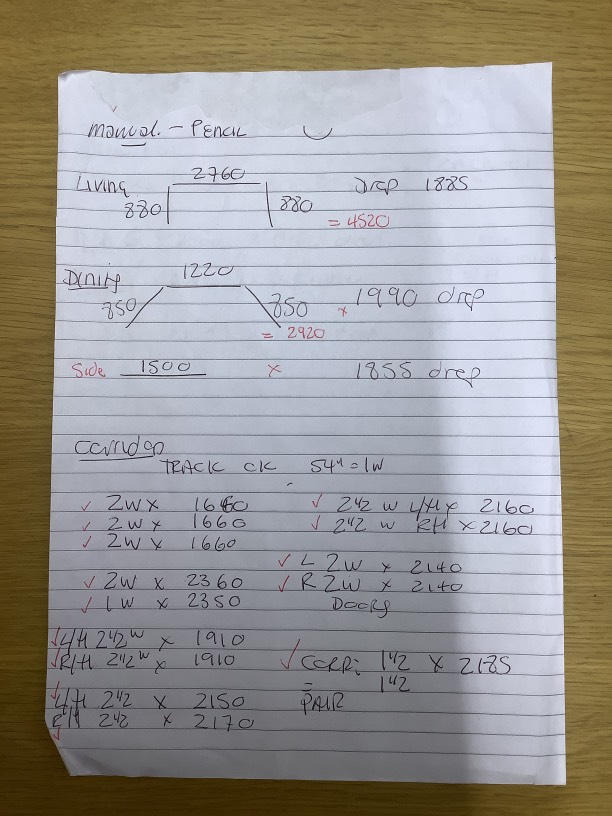 manual. - PENCIL
Living 2760 Drop 1885
880 880
= 4520
Dining 1220
850 850 x 1990 drop
= 2920
Side 1500 x 1855 drop
Corridor
TRACK OK 54" = 1W
✓ 2W x 1660
✓ 2W x 1660
✓ 2W x 1660
✓ 2W x 2360
✓ 1W x 2350
✓ L/H 2 1/2 W x 1910
✓ R/H 2 1/2 W x 1910
✓ L/H 2 1/2 x 2150
R/H 2 1/2 x 2170
✓ 2 1/2 W L/H x 2160
✓ 2 1/2 W R/H x 2160
✓ L 2W x 2140
✓ R 2W x 2140
DOORS
✓ CORR: 1 1/2 x 2185
= 1 1/2
PAIR